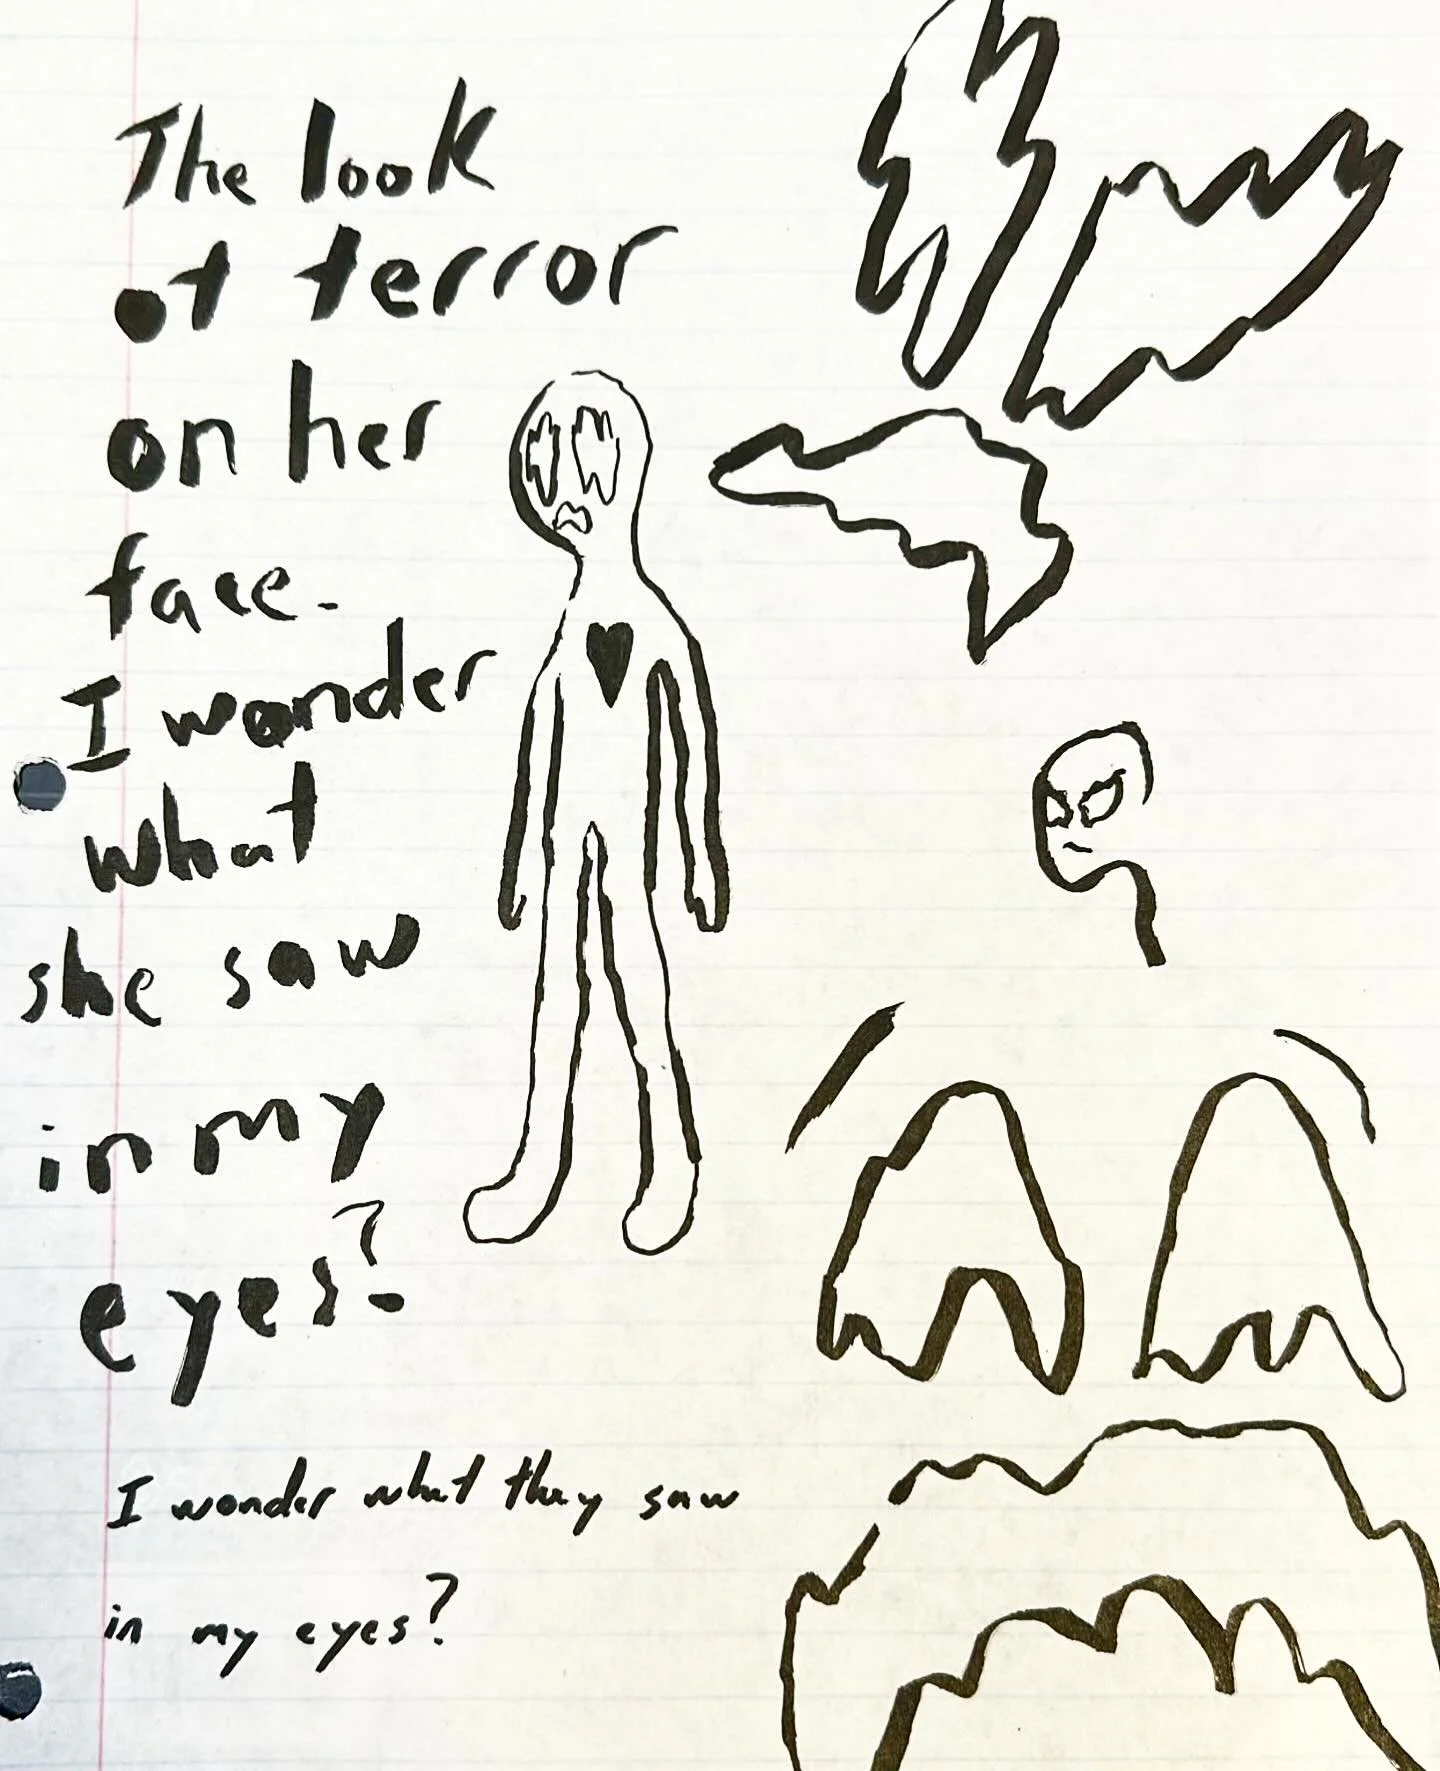 The look
of terror
on her
face.
I wonder
what
she saw
in my
eyes?
I wonder what they saw
in my eyes?